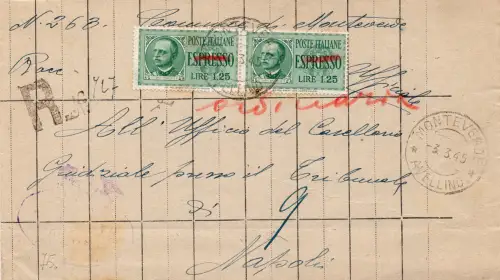 N. 260 Comune di Monteverde
POSTE ITALIANE
ESPRESSO
LIRE 1.25
POSTE ITALIANE
ESPRESSO
LIRE 1.25
Racc. Ufficiale
R
ordinaria
All' Ufficio del Casellario
Giudiziale presso il Tribunale
di
9
Napoli
MONTEVERDE
-3.3.45
* AVELLINO *
75.